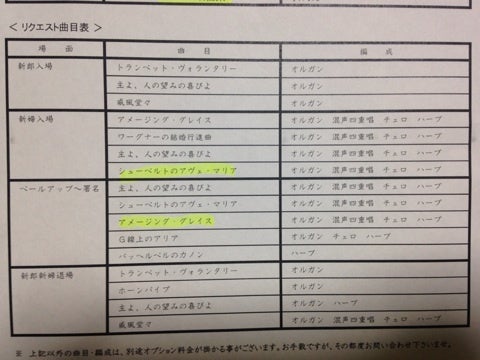 ＜ リクエスト曲目表 ＞
場　面　曲　目　編　成
新郎入場　トランペット・ヴォランタリー　オルガン
主よ、人の望みの喜びよ　オルガン
威風堂々　オルガン
新婦入場　アメージング・グレイス　オルガン　混声四重唱　チェロ　ハープ
ワーグナーの結婚行進曲　オルガン　混声四重唱　チェロ　ハープ
主よ、人の望みの喜びよ　オルガン　混声四重唱　チェロ　ハープ
シューベルトのアヴェ・マリア　オルガン　混声四重唱　チェロ　ハープ
ベールアップ～署名　主よ、人の望みの喜びよ　オルガン　混声四重唱　チェロ　ハープ
シューベルトのアヴェ・マリア　オルガン　混声四重唱　チェロ　ハープ
アメージング・グレイス　オルガン　混声四重唱　チェロ　ハープ
G線上のアリア　オルガン　チェロ　ハープ
パッヘルベルのカノン　ハープ
新郎新婦退場　トランペット・ヴォランタリー　オルガン
ホーンパイプ　オルガン
主よ、人の望みの喜びよ　オルガン　ハープ
威風堂々　オルガン　混声四重唱　チェロ　ハープ
※ 上記以外の曲目・編成は、別途オプション料金が掛かる事がございます。お手数ですが、その都度お問い合わせ下さいませ。